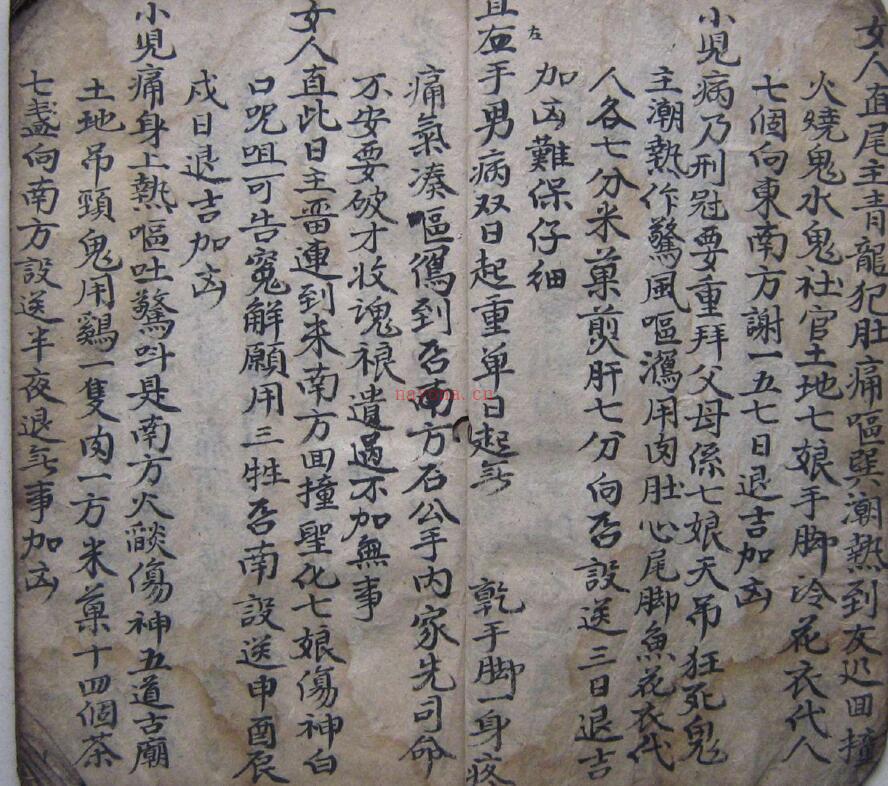 女人直尾主青龍犯肚痛嘔哭潮熱到友迟回撞
火燒鬼水鬼社官土地七娘手脚冷花衣代人
七個向東南方謝一五七日退吉加凶
小児病乃刑尅要重拜父母係七娘天吊狂死鬼
主潮熱作驚風嘔瀉用肉肚心尾脚魚花衣代
人各七分米菓煎肝七分向否設送三日退吉
左
加凶難保仔細
直右手男病双日起重单日起 乾手脚一身疼
痛氣凑嘔到否南方石公手内家先司命
不安要破才收魂禄遺過不加無事
女人直此日主畨連到来南方回撞聖化七娘傷神白
口呪咀可告寃解願用三牲否南設送申酉辰
戍日退吉加凶
小児痛身上熱嘔吐驚呌是南方火燄傷神五道古廟
土地吊頸鬼用鷄一隻肉一方米菓十四個茶
七盞向南方設送半夜退事加凶
nayona.cn